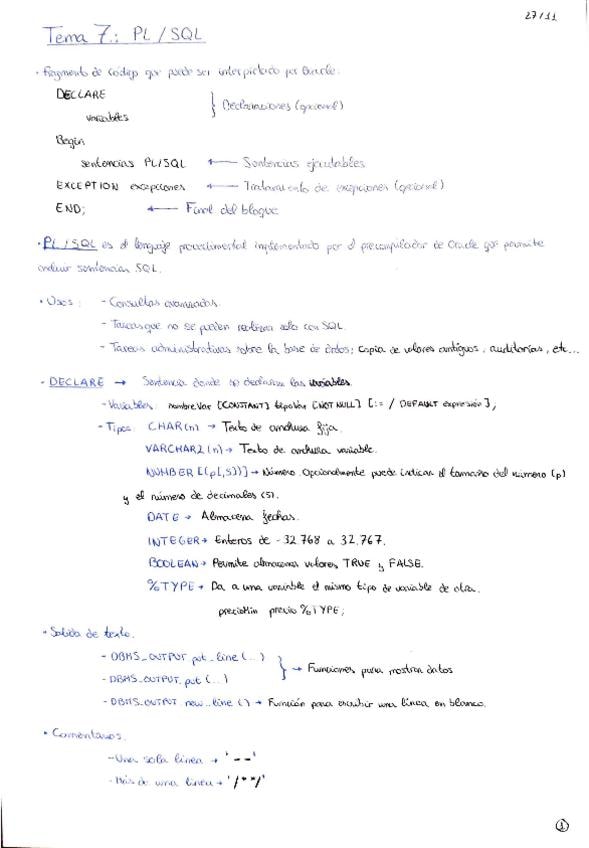 27/11
Tema 7.: PL/SQL
· Fragmento de código que puede ser interpretado por Oracle:
DECLARE
variables
} Declaraciones (opcional)
Begin
sentencias PL/SQL ← Sentencias ejecutables
EXCEPTION excepciones ← Tratamiento de excepciones (opcional)
END; ← Final del bloque
· PL/SQL es el lenguaje procedimental implementado por el precompilador de Oracle que permite
incluir sentencias SQL.
· Usos: - Consultas avanzadas.
- Tareas que no se pueden realizar solo con SQL.
- Tareas administrativas sobre la base de datos; copia de valores antiguos, auditorías, etc...
· DECLARE → Sentencia donde se declaran las variables.
- Variables: nombreVar [CONSTANT] tipoVar [NOT NULL] [:= / DEFAULT expresión];
- Tipos: CHAR(n) → Texto de anchura fija.
VARCHAR2(n) → Texto de anchura variable.
NUMBER[(p[,s])] → Número. Opcionalmente puede indicar el tamaño del número (p)
y el número de decimales (s).
DATE → Almacena fechas.
INTEGER → Enteros de -32.768 a 32.767.
BOOLEAN → Permite almacenar valores TRUE y FALSE.
%TYPE → Da a una variable el mismo tipo de variable de otra.
precioMin precio%TYPE;
· Salida de texto.
- DBMS_OUTPUT.put_line(...)
- DBMS_OUTPUT.put(...)
} → Funciones para mostrar datos
- DBMS_OUTPUT.new_line() → Función para escribir una línea en blanco.
· Comentarios.
- Una sola línea → '--'
- Más de una línea → '/**/'
1